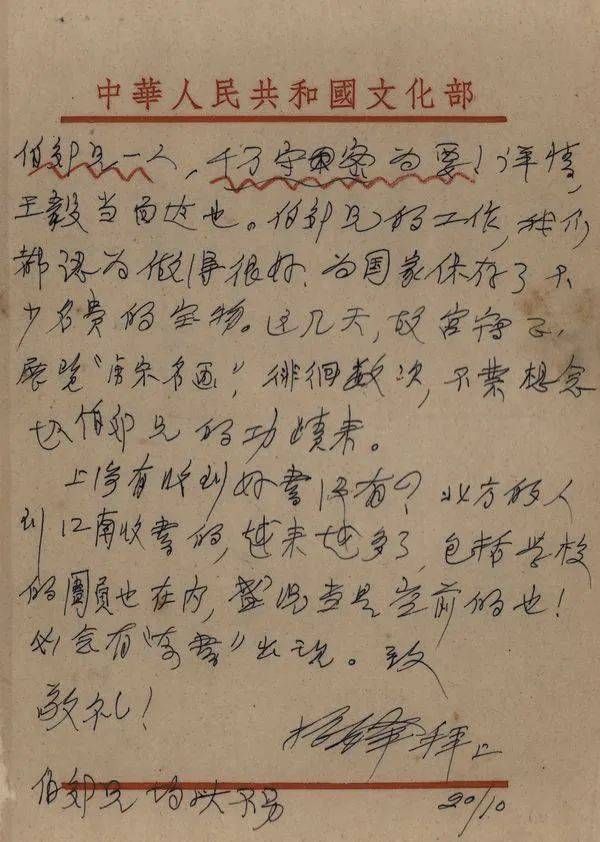 中華人民共和國文化部
伯郊兄一人，千万守密为要！详情，
王毅当面达也。伯郊兄的工作，我们
都認为做得很好，为国家保存了不
少名貴的宝物。这几天，故宫
展览“唐宋名画”，徘徊数次，不禁想念
伯郊兄的功績来。
上海有收到好書没有？北方的人
到江南收書的，越来越多了，包括学校
的圖員也在内，盛况当是空前的也！
必会有“奇書”出现。致
敬礼！
振鐸 拜上
伯郊兄均此不另
20/10